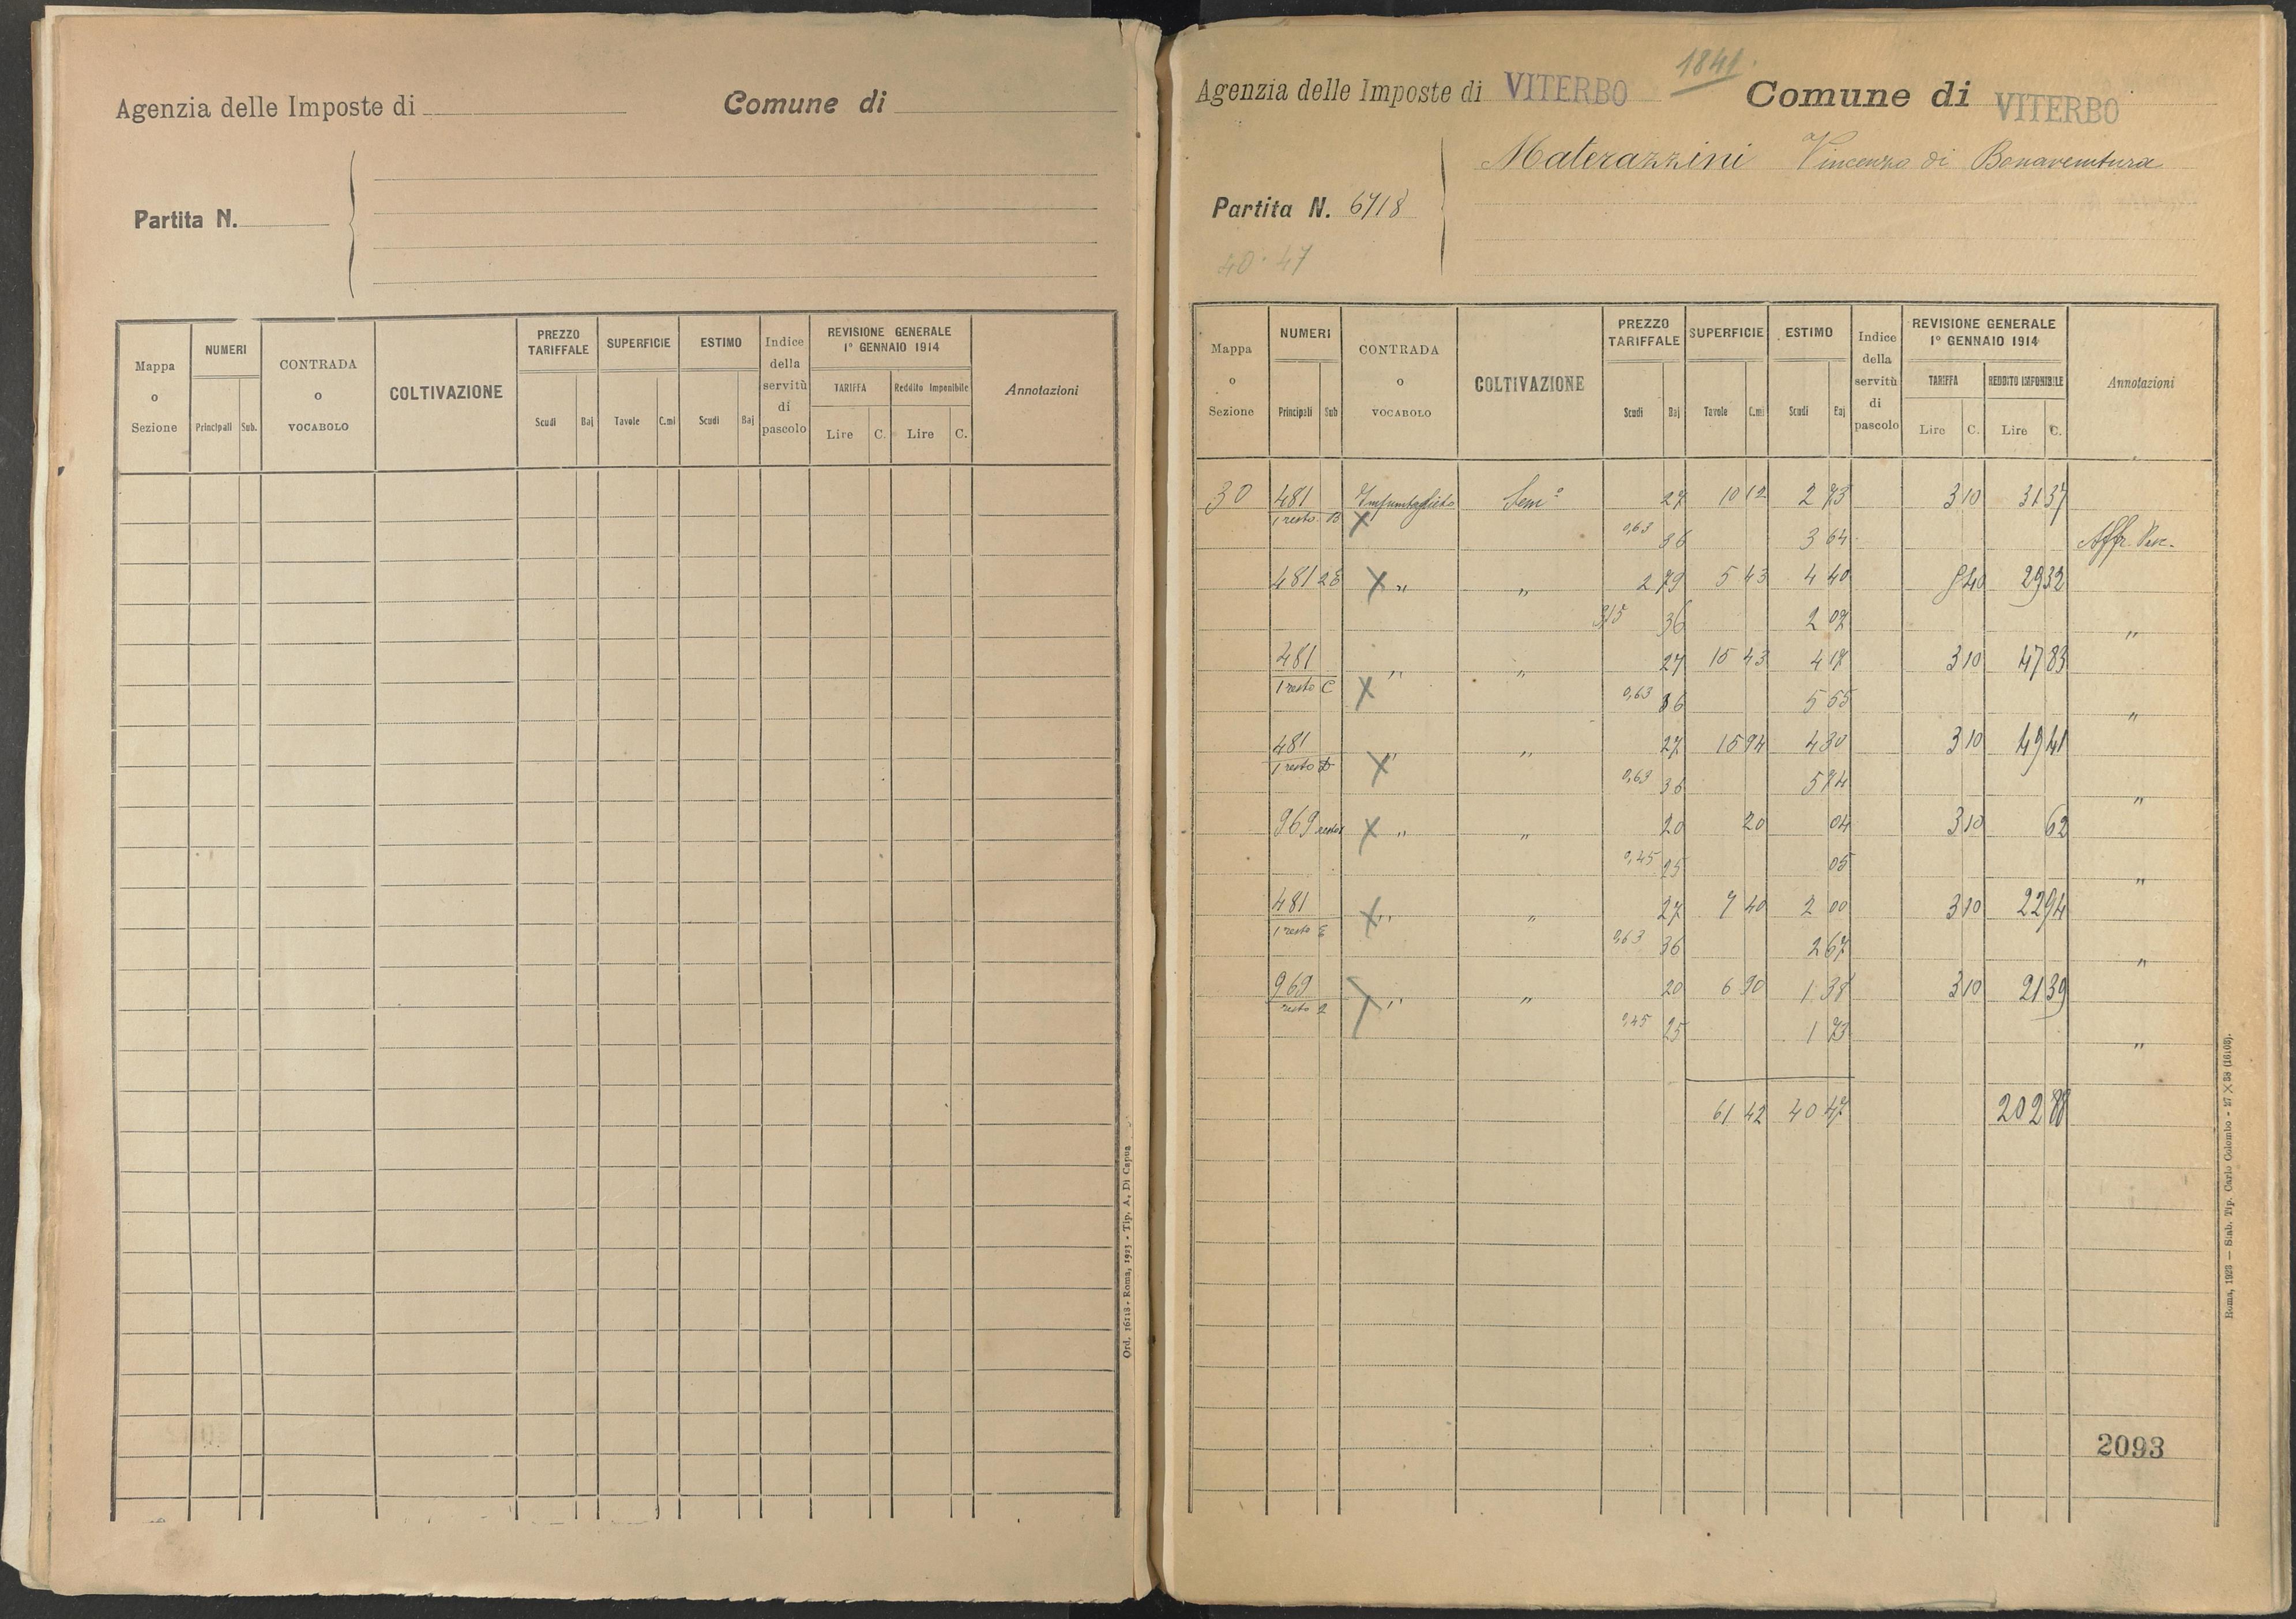 Agenzia delle Imposte di
Comune di
Partita N.
Mappa o Sezione
NUMERI
Principali Sub.
CONTRADA o VOCABOLO
COLTIVAZIONE
PREZZO TARIFFALE
Scudi Baj
SUPERFICIE
Tavole C.mi
ESTIMO
Scudi Baj
Indice della servitù di pascolo
REVISIONE GENERALE 1º GENNAIO 1914
TARIFFA Reddito Imponibile
Lire C. Lire C.
Annotazioni
Ord. 16218 - Roma, 1923 - Tip. A. Di Capua
1841
Agenzia delle Imposte di VITERBO Comune di VITERBO
Materazzini Vincenzo di Bonaventura
Partita N. 6718
40.47
Mappa o Sezione
NUMERI
Principali Sub
CONTRADA o VOCABOLO
COLTIVAZIONE
PREZZO TARIFFALE
Scudi Baj
SUPERFICIE
Tavole C.mi
ESTIMO
Scudi Baj
Indice della servitù di pascolo
REVISIONE GENERALE 1º GENNAIO 1914
TARIFFA REDDITO IMPONIBILE
Lire C. Lire C.
Annotazioni
30 481 Semº 27 10 12 2 73 3 10 31 37
1 resto B X
0,63 36 3 64
481 2 E X " " 2 79 5 43 4 40 5 40 29 32
3,15 36 2 07 "
481 " " 27 15 43 4 17 3 10 47 83
1 resto C X
0,63 36 5 55 "
481 " " 27 15 94 4 30 3 10 49 41
1 resto D X
0,63 36 5 74 "
969 resto 1 X " " 20 20 04 3 10 62
0,45 25 05 "
481 X " " 27 7 40 2 00 3 10 22 94
1 resto E
0,63 36 2 67 "
969 " " 20 6 90 1 38 3 10 21 39
resto 2
0,45 25 1 73 "
61 42 40 47 202 88
2093
Roma, 1923 — Stab. Tip. Carlo Colombo - 27 X 38 (16108).